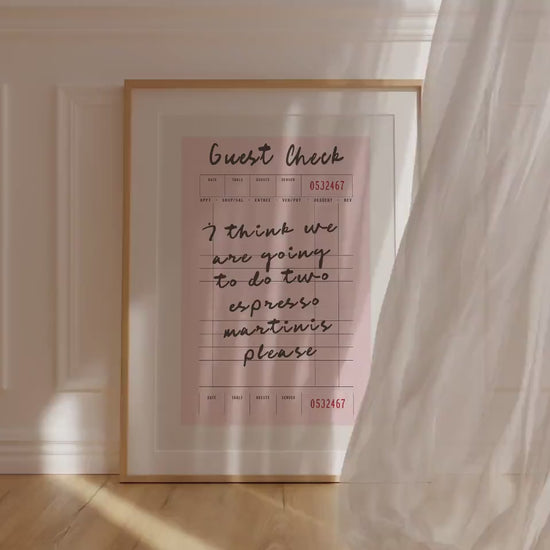 Guest Check
DATE TABLE GUESTS SERVER 0532467
APPT - SOUP/SAL - ENTREE - VEG/POT - DESSERT - BEV
I think we
are going
to do two
espresso
martinis
please
DATE TABLE GUESTS SERVER 0532467